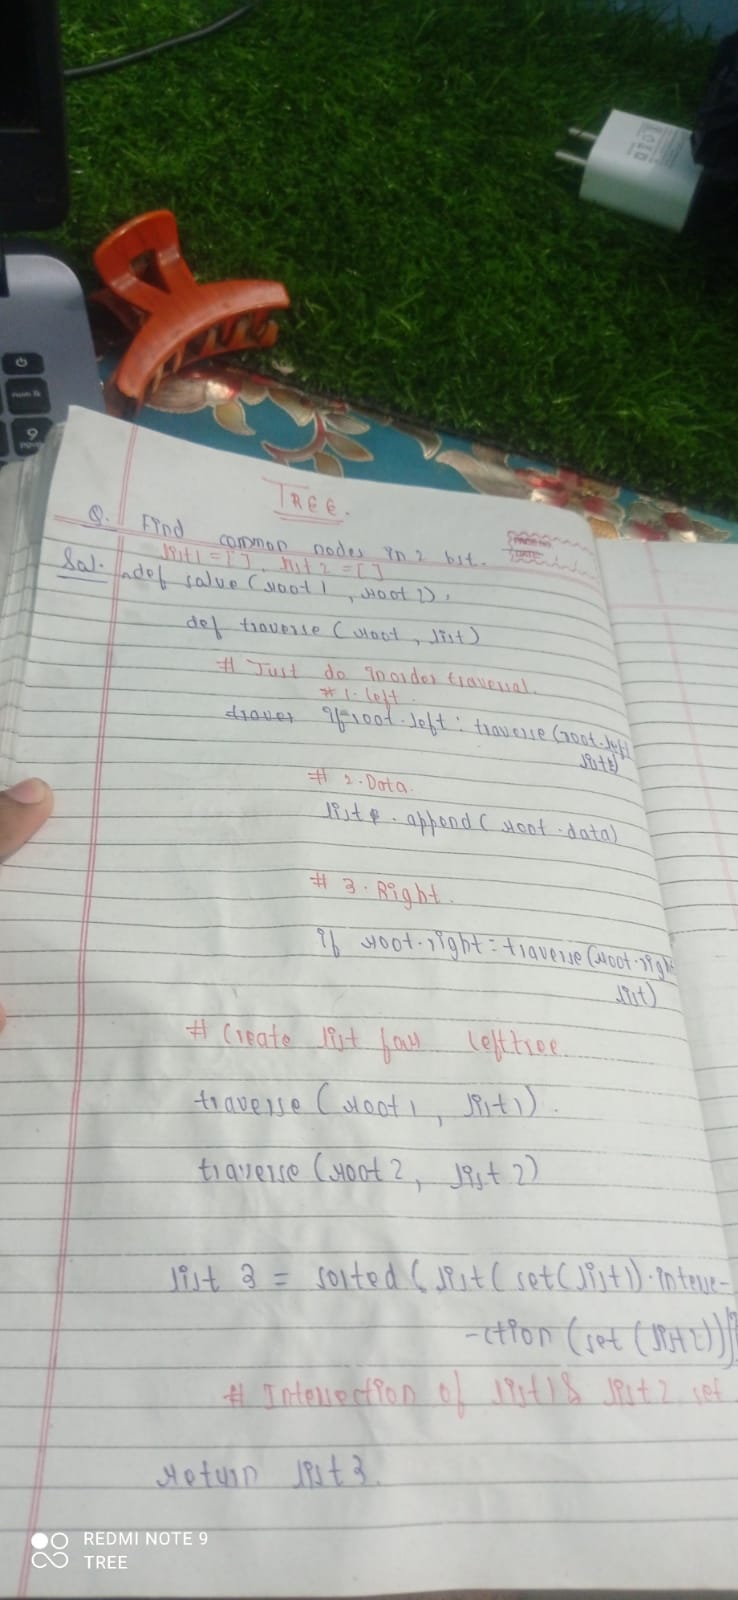 TREE.
Q. Find common nodes in 2 bst.
list1 = [], list2 = []
Sol. def solve(root1, root2):
def traverse(root, list)
# Just do inorder traversal.
# 1. Left.
if root.left: traverse(root.left
list)
# 2. Data.
list.append(root.data)
# 3. Right.
if root.right: traverse(root.right
list)
# Create list for left tree.
traverse(root1, list1).
traverse(root2, list2)
list 3 = sorted(list(set(list1).interse-
-ction(set(list2)))
# Intersection of list1 & list2 set.
return list3.
REDMI NOTE 9
TREE